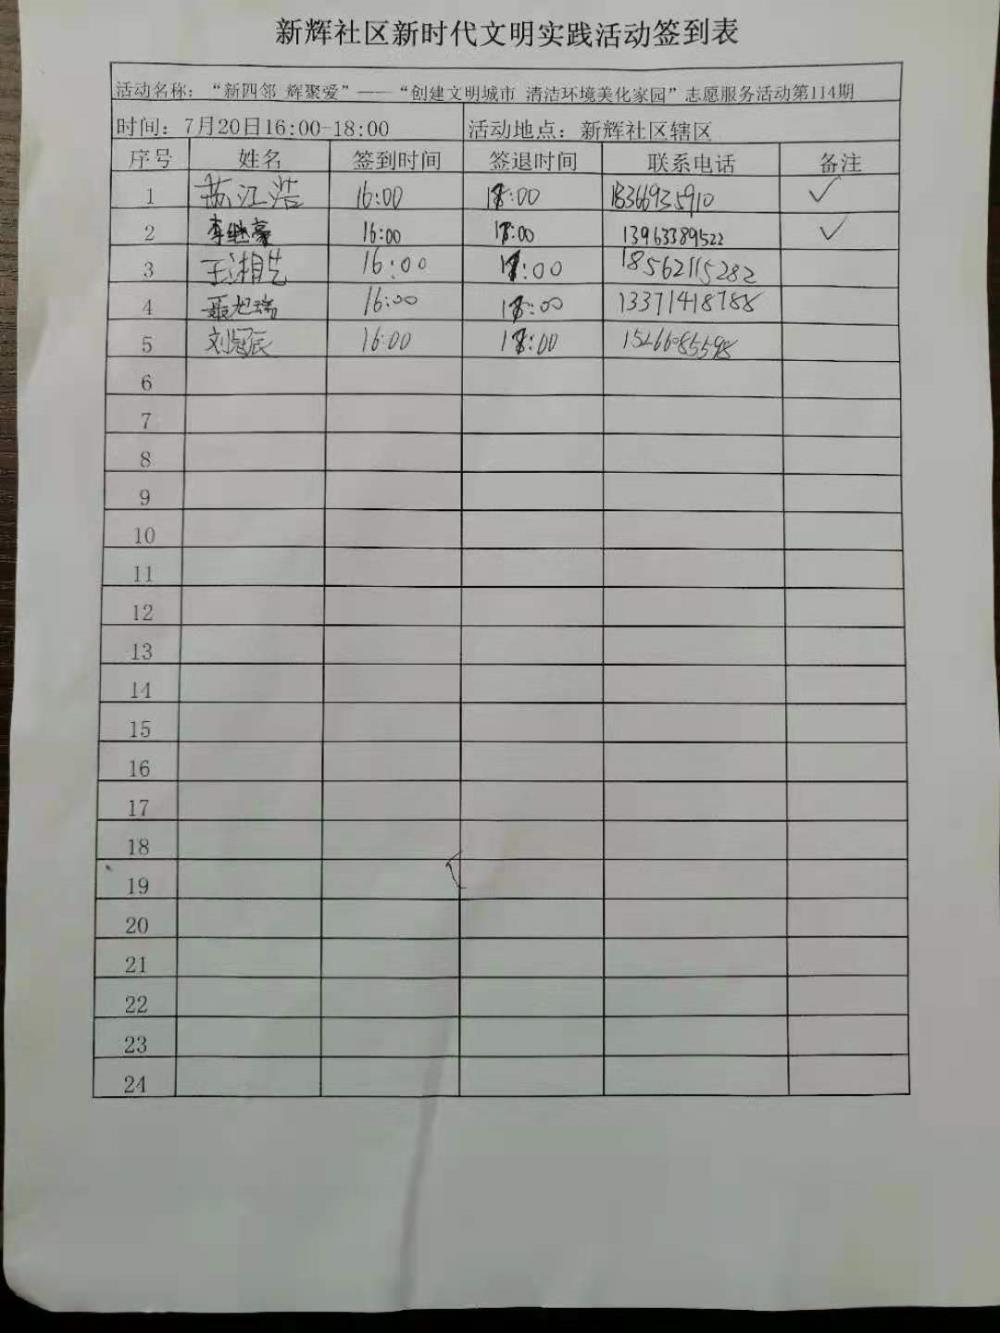 新辉社区新时代文明实践活动签到表
活动名称：“新四邻 辉聚爱”——“创建文明城市 清洁环境美化家园”志愿服务活动第114期
时间：7月20日16:00-18:00 活动地点：新辉社区辖区
序号 姓名 签到时间 签退时间 联系电话 备注
1 江浩 16:00 18:00 18366935910 ✓
2 李继豪 16:00 18:00 13963389522 ✓
3 王湘 16:00 18:00 18562115282
4 聂旭瑞 16:00 18:00 13371418788
5 刘冠辰 16:00 18:00 15266085598
6
7
8
9
10
11
12
13
14
15
16
17
18
19
20
21
22
23
24